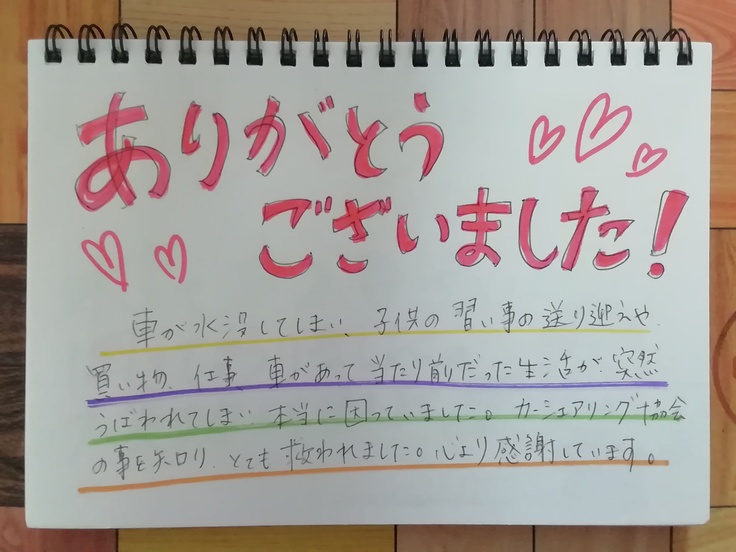 ありがとう
ございました!
車が水没してしまい、子供の習い事の送り迎えや
買い物、仕事、車があって当たり前だった生活が、突然
うばわれてしまい、本当に困っていました。カーシェアリング協会
の事を知り、とても救われました。心より感謝しています。